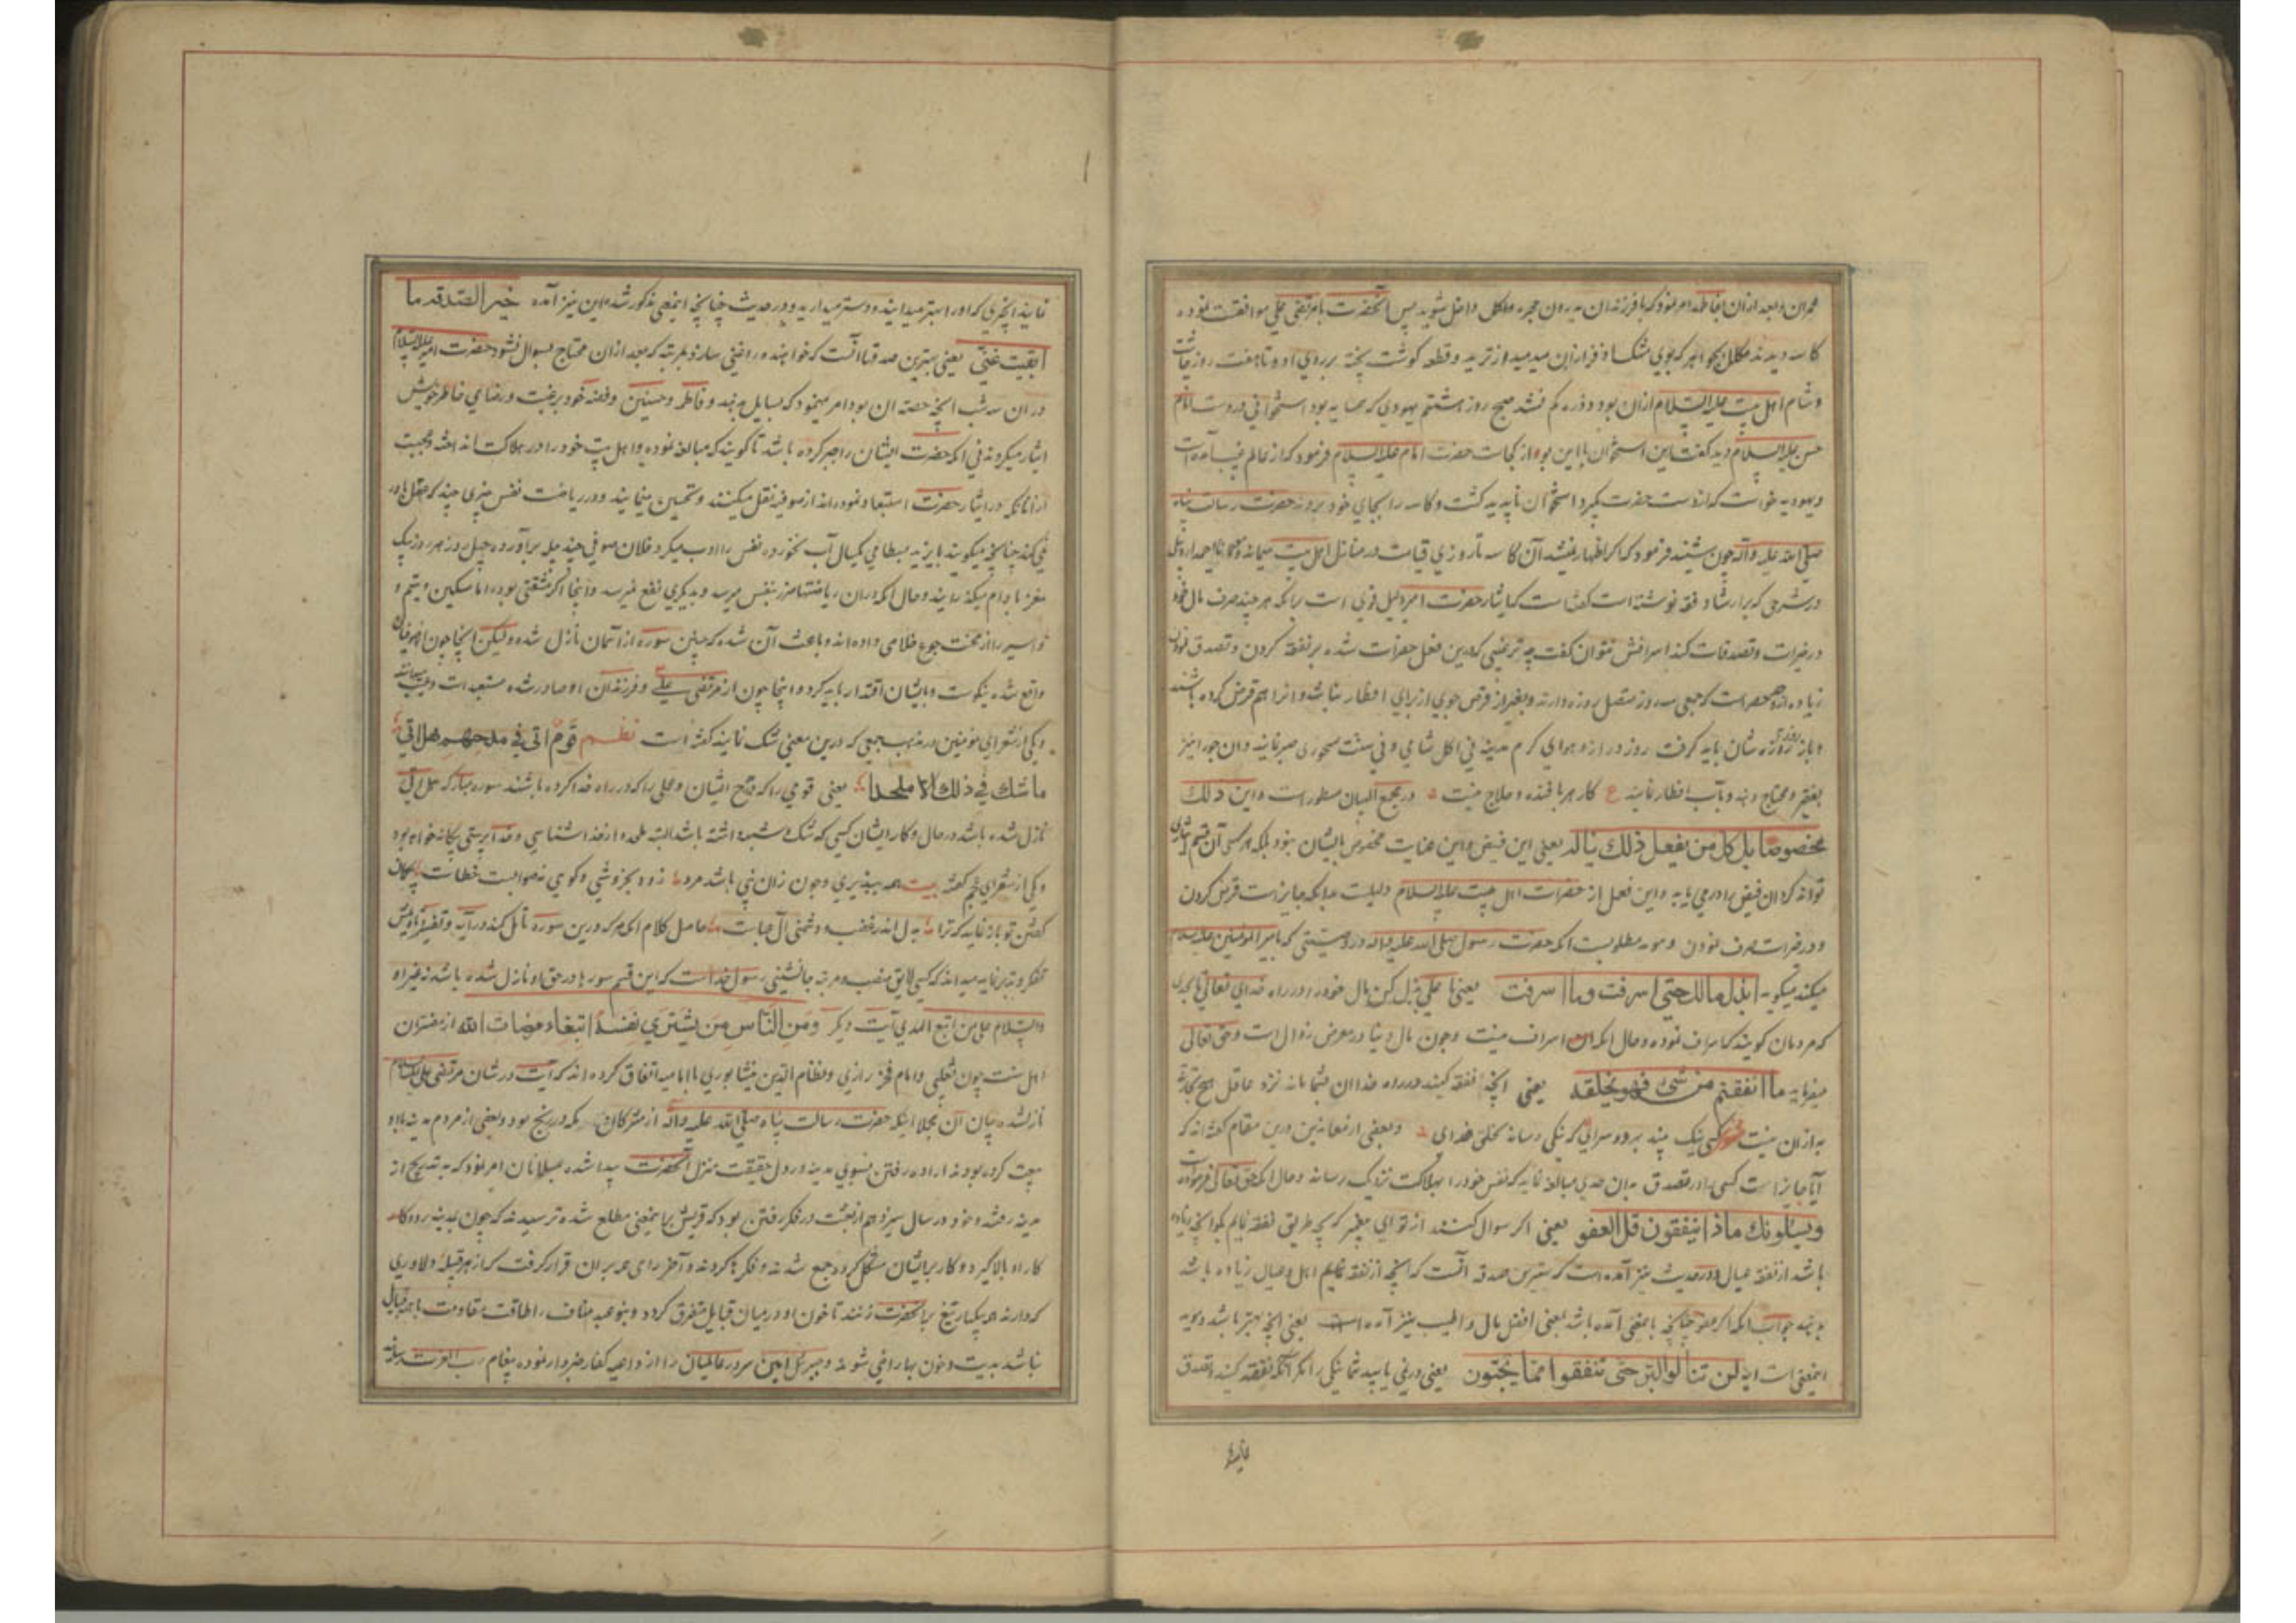 عمران و بعد از آن بفاطمه امر نمود که با فرزندان بدرون حجره داخل شوید پس آنحضرت با مرتضی علی موافقت نموده
کاسه دیدند مکلل بجواهر که بوی مشک اذفر از آن میدمید از ترید و قطعه گوشت پخته بر روی او و تا هفت روز چاشت
و شام اهل بیت علیه السلام از آن بود و ذره کم نشد صبح روز هشتم یهودی که همسایه بود استخوانی در دست امام
حسن علیه السلام دید گفت این استخوان با این بو از کجاست حضرت امام علیه السلام فرمود که از عالم غیب آمده است
و یهودیه خواست که از دست حضرت بگیرد استخوان ناپدید گشت و کاسه را بجای خود بردند حضرت رسالت پناه
صلی الله علیه وآله چون شنید فرمود که اگر اظهار نمیشد آن کاسه تا روزی قیامت در منازل اهل بیت میماند و مولانا احمد اردبیلی
در شرحی که بر ارشاد فقه نوشته است گفته است که ایثار حضرت امیر دلیل قوی است بر آنکه هر چند صرف مال خود
در خیرات و تصدقات کند اسرافش نتوان گفت چه ترغیبی که درین فعل حضرات شده بر نفقه کردن و تصدق نمودن
زیاده از حصر است که جمعی سه روز متصل روزه دارند و بغیر از قرض جوی از برای افطار نباشد و آنرا هم قرض کرده باشند
و باز روزه شان باید گرفت روز دراز و هوای گرم مدینه نی اکل شامی و نی سنت سحوری صبر نمایند و آن جو را نیز
بفقیر و محتاج دهند و بآب افطار نمایند ع کار هر بافنده و حلاج نیست در مجمع البیان مسطور است و لیس ذلک
مخصوصا بل کل من یفعل ذلک یناله یعنی این فیض و این عنایت مخصوص بایشان نبود بلکه هر کس آن قسم ایثاری
تواند کرد آن فیض را در می یابد و این فعل از حضرات اهل بیت علیه السلام دلیلست بدانکه جایز است قرض کردن
و در خیرات صرف نمودن و موید مطلوبست آنکه حضرت رسول صلی الله علیه وآله در وصیتی که بامیر المؤمنین علیه السلام
میکند میگوید ابذل مالک حتی اسرفت وما اسرفت یعنی یا علی بذل کن مال خود را در راه خدای تعالی تا بحدی
که مردمان گویند که اسراف نموده و حال آنکه آن اسراف نیست و چون مال دنیا در معرض زوال است و حق تعالی
میفرماید ما انفقتم من شئ فهو یخلفه یعنی آنچه نفقه کنید در راه خدا آن شما ماند نزد عاقل هیچ تجارتی
به از آن نیست کسی نیک بیند بهر دو سرای که نیکی رساند بخلق خدای و بعضی از معاندین درین مقام گفته اند که
آیا جایز است کسی را در تصدق به آن حدی مبالغه نماید که نفس خود را بهلاکت نزدیک رساند و حال آنکه حق تعالی فرموده
ویسئلونک ماذا ینفقون قل العفو یعنی اگر سوال کنند از تو ای پیغمبر که بچه طریق نفقه نمایم بگو آنچه زیاده
باشد از نفقه عیال و در حدیث نیز آمده است که بهترین صدقه آنست که آنچه از نفقه نمایم اهل و عیال زیاده باشد
بدهند جواب آنکه اگر عفو چنانچه باینمعنی آمده باشد بمعنی افضل مال و اطیب نیز آمده است یعنی آنچه بهتر باشد و موید
اینمعنی است آیه لن تنالوا البر حتی تنفقوا مما تحبون یعنی در نمی یابید شما نیکی را مگر آنکه نفقه کنید و تصدق
نمایید
نمایید آنچیزی که او را بهتر میدانید و دوستر میدارید و در حدیث چنانچه اینمعنی مذکور شده این نیز آمده خیر الصدقه ما
ابقیت غنی یعنی بهترین صدقها آنست که خواهنده را غنی سازد بمرتبه که بعد از آن محتاج بسوال نشود حضرت امیر علیه السلام
در آن سه شب آنچه حصه آن بود امر مینمود که بسایل دهند و فاطمه و حسنین و فضه خود برغبت و رضای خاطر خویش
ایثار میکردند نی آنکه حضرت ایشان را جبر کرده باشد تا گویند که مبالغه نموده و اهل بیت خود را در هلاکت انداخته و عجبست
از آنانکه در ایثار حضرت استبعاد نموده اند از صوفیه نقل میکنند و تحسین مینمایند و در ریاضت نفس چیزی چند که عقل باور
نمی کند چنانچه میگویند بایزید بسطامی یکسال آب نخورده نفس را ادب میکرد و فلان صوفی چند چله برآورده چهل روز هر روز یک
مغز بادام میگذرانیده و حال آنکه در آن ریاضتها ضرر بنفس میرسد و بدیگری نفع نمیرسد و اینجا اگر مشقتی بوده اما مسکین و یتیم و
اسیر را از محنت جوع خلاصی داده اند و باعث آن شده که چنین سوره از آسمان نازل شده ولیکن آنجا چون از صوفیان
واقع شده نیکوست و بایشان اقتدا باید کرد و اینجا چون از مرتضی علی و فرزندان او صادر شده مستبعد است
و یکی از شعرای مؤمنین در مذهب جمعی که درین معنی شک نمایند گفته است نظم قوم اتی فی مدحهم هل اتی
ما شک فی ذلک الا ملحدا یعنی قومی را که مدح ایشان و عملی را که در راه خدا کرده باشند سوره مبارکه هل اتی
نازل شده باشد در حال و کار ایشان کسی که شک و شبه داشته باشد البته ملحده از خدا شناسی و خدا پرستی بیگانه خواهد بود
و یکی از شعرای عجم گفته بیت همه بپذیری و چون زان نبی باشد مرد زود بخروشی و گویی نه صوابست خطاست
گفتن تو باز نماید که ترا بدل اندر غضب و دشمنی آل عباست حاصل کلام آنکه هر که درین سوره تأمل کند در آیه و تفسیر و تأویلش
تفکر و تدبر نماید میداند که کسی لایق منصب و مرتبه جانشینی رسول خداست که این قسم سورها در حق او نازل شده باشد نه غیر او
والسلام علی من اتبع الهدی آیت دیگر ومن الناس من یشتری نفسه ابتغاء مرضات الله از مفسران
اهل سنت چون ثعلبی و امام فخر رازی و نظام الدین نیشابوری با امامیه اتفاق کرده اند که آیت در شان مرتضی علی علیه السلام
نازلشده بیان آن مجملا اینکه حضرت رسالت پناه صلی الله علیه وآله از مشرکان مکه در رنج بود و بعضی از مردم مدینه با او
بیعت کرده بودند اراده رفتن بسوی مدینه در دل حقیقت منزل آنحضرت پیدا شده بمسلمانان امر نمود که به تدریج از
مدینه رفته و خود در سال سیزدهم از بعثت در فکر رفتن بود که قریش بر اینمعنی مطلع شده ترسیدند که چون بمدینه رود
کار او بالا گیرد و کار بر ایشان مشکل گردد جمع شدند و فکرها کردند و آخر رای همه بر آن قرار گرفت که از هر قبیله دلاوری
که دارند همه بیکبار تیغ بر آنحضرت زنند تا خون او در میان قبایل متفرق گردد و بنو عبد مناف را طاقت مقاومت با همه قبایل
نباشد بدیت و خون بها راضی شوند و جبرئیل امین سرور عالمیان را از داعیه کفار خبردار نموده پیغام رب العزت رسانید